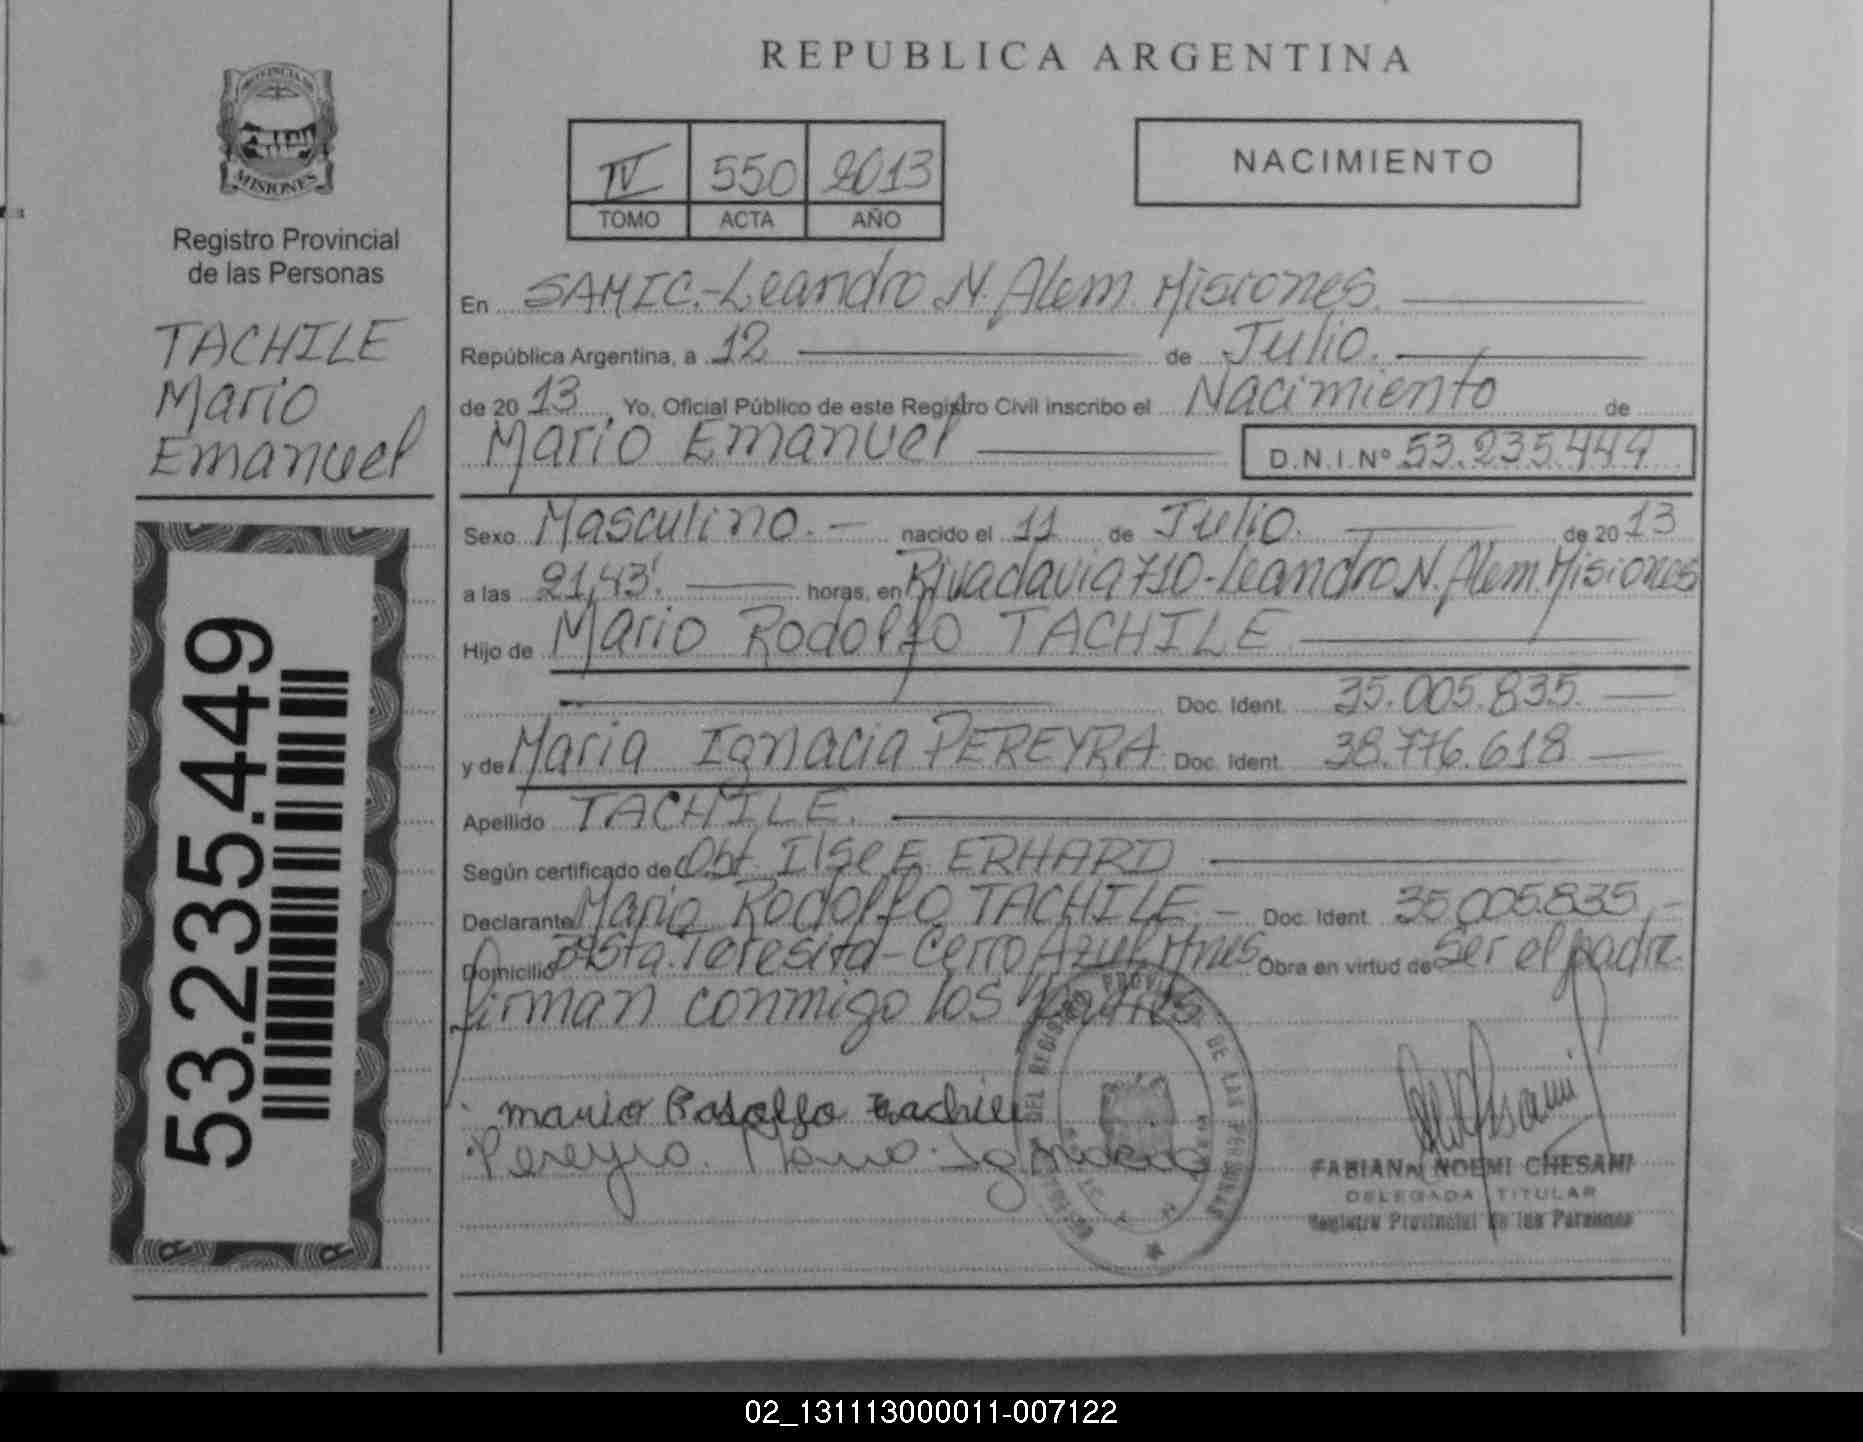 REPUBLICA ARGENTINA
PROVINCIA DE
MISIONES
Registro Provincial
de las Personas
TACHILE
Mario
Emanuel
53.235.449
IV 550 2013
TOMO ACTA AÑO
NACIMIENTO
En SAMIC.-Leandro N. Alem. Misiones.
República Argentina, a 12 de Julio.
de 20 13, Yo, Oficial Público de este Registro Civil inscribo el Nacimiento de
Mario Emanuel D.N.I.Nº 53.235.449
Sexo Masculino.- nacido el 11 de Julio. de 20 13
a las 21,43'. horas, en Rivadavia 710-Leandro N. Alem. Misiones
Hijo de Mario Rodolfo TACHILE
Doc. Ident. 35.005.835.
y de Maria Ignacia PEREYRA Doc. Ident. 38.776.618
Apellido TACHILE.
Según certificado de Obt. Ilse E. ERHARD
Declarante Mario Rodolfo TACHILE.- Doc. Ident. 35.005.835.-
Domicilio Teresita-Cerro Azul, Mnes. Obra en virtud de Ser el padre.
firman conmigo los Padres
Mario Rodolfo Tachile
Pereyra. Maria. Ignacia
DEL REGISTRO PROVINCIAL DE LAS PERSONAS
FABIANA NOEMI CHESANI
DELEGADA TITULAR
Registro Provincial de las Personas
02_131113000011-007122